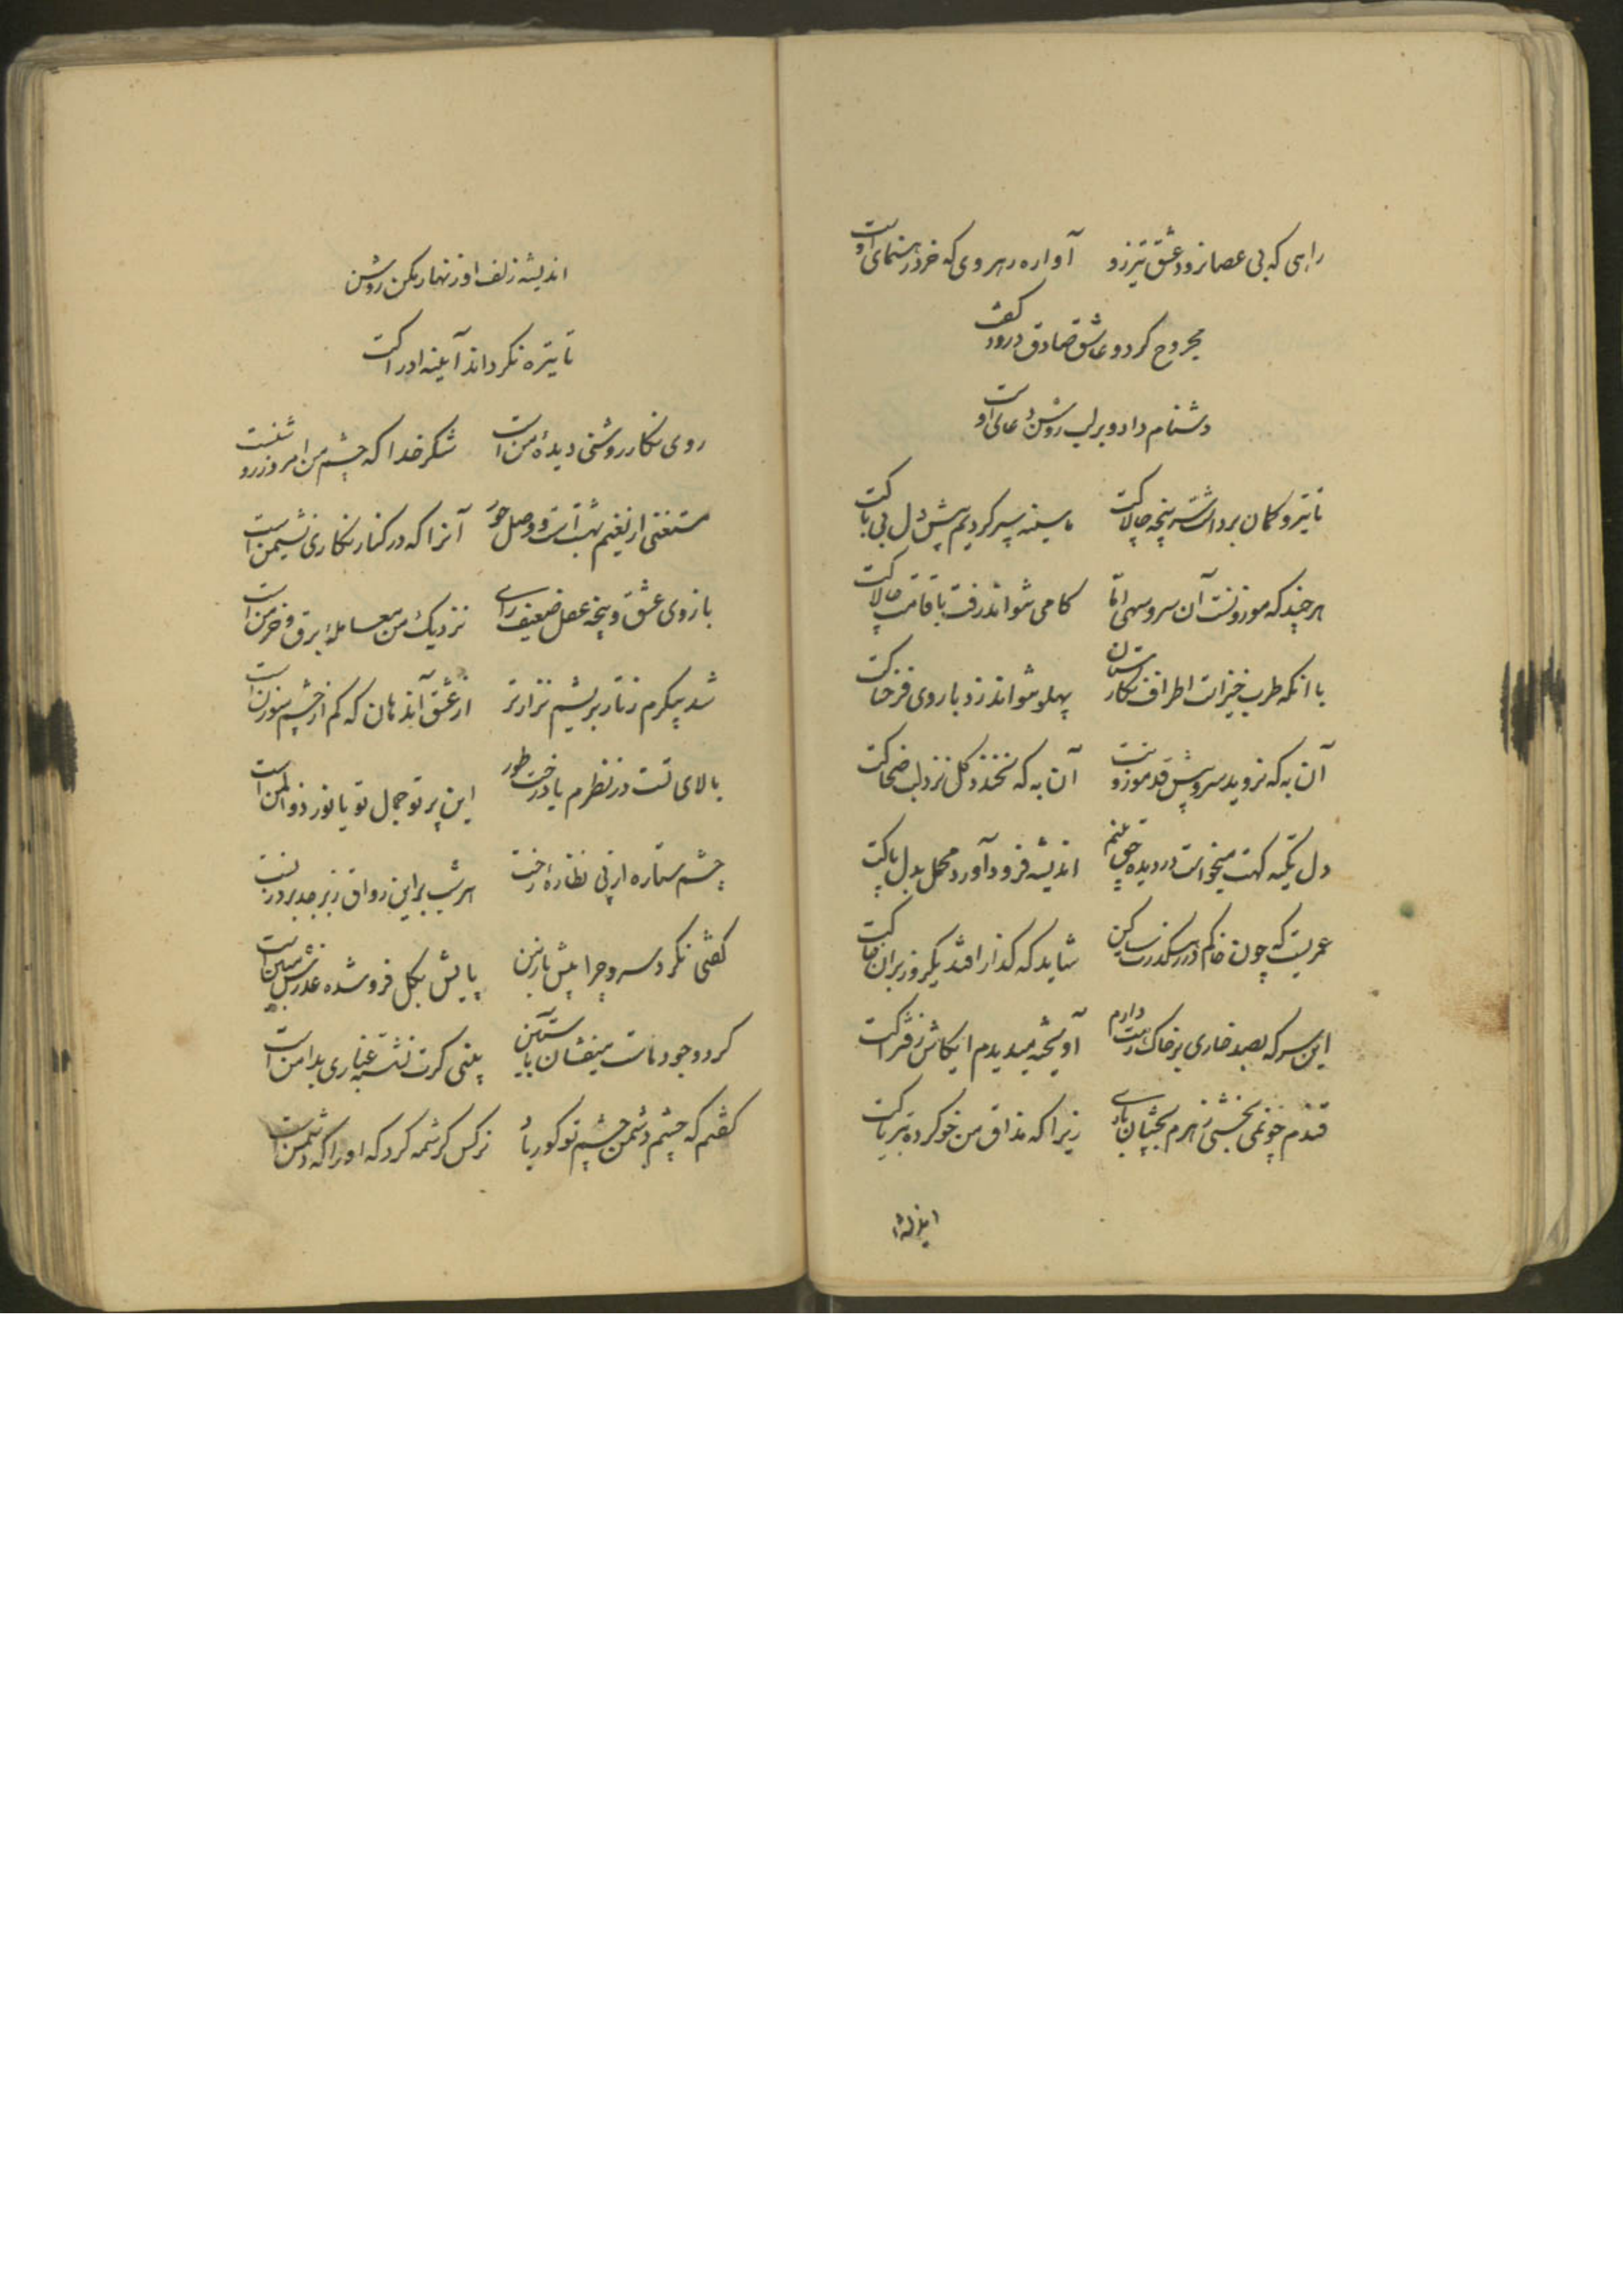 راهی که بی عصا نرود عشق تیزرو آواره رهروی که خرد رهنمای اوست
مجروح کرد و عاشق صادق درود گفت
دشنام داد و بر لب روشن دعای اوست
تا تیر و کمان برداشت سرپنجه چالاکت ما سینه سپر کردیم پیش دل بی باکت
هر چند که موزونست آن سرو سهی اما کامی نتواند رفت با قامت چالاکت
با آنکه طرب خیز است اطراف نکارستان پهلو نتواند زد با روی فرحناکت
آن به که نروید سرو پیش قد موزونت آن به که نخندد کل نزد لب ضحاکت
دل تکیه کهت میخواست در دیده اندیشه فرود آورد محمل بدل پاکت
عمریست که چون خاکم در رهکذرت شاید که کذار افتد یکروز بر آن خاکت
این سر که بصد خاری بر خاک رهت دارم آویخته میدیدم ایکاش ز فتراکت
قندم چو نمی بخشی زهرم بچشان باری زیرا که مذاق من خو کرده بتریاکت
اندیشه
اندیشه زلف او زنهار مکن روشن
تا تیره نکرداند آیینه ادراکت
روی نکار روشنی دیده من است شکر خدا که چشم من امروز روشنست
مستغنی از نعیم بهشت است و وصل حور آنرا که در کنار نکاری نشیمن است
بازوی عشق و پنجه عقل ضعیف رای نزدیک من معامله برق و خرمن است
شد پیکرم ز تار بریشم نزارتر از عشق آندهان که کم از چشم سوزن است
بالای تست در نظرم یا درخت طور این پرتو جمال تو یا نور ذوالمن است
چشم ستاره از پی نظاره رخت هر شب بر این رواق زبرجد بروزنست
کفتی نکرد سرو چرا پیش ما زمین پایش بکل فرو شده عذرش مبین است
کرد وجود ماست میفشان بآستین بینی کرت نشسته غباری بدامن است
کفتم که چشم دشمن چشم تو کور باد نرکس کرشمه کرد که او را که دشمن است